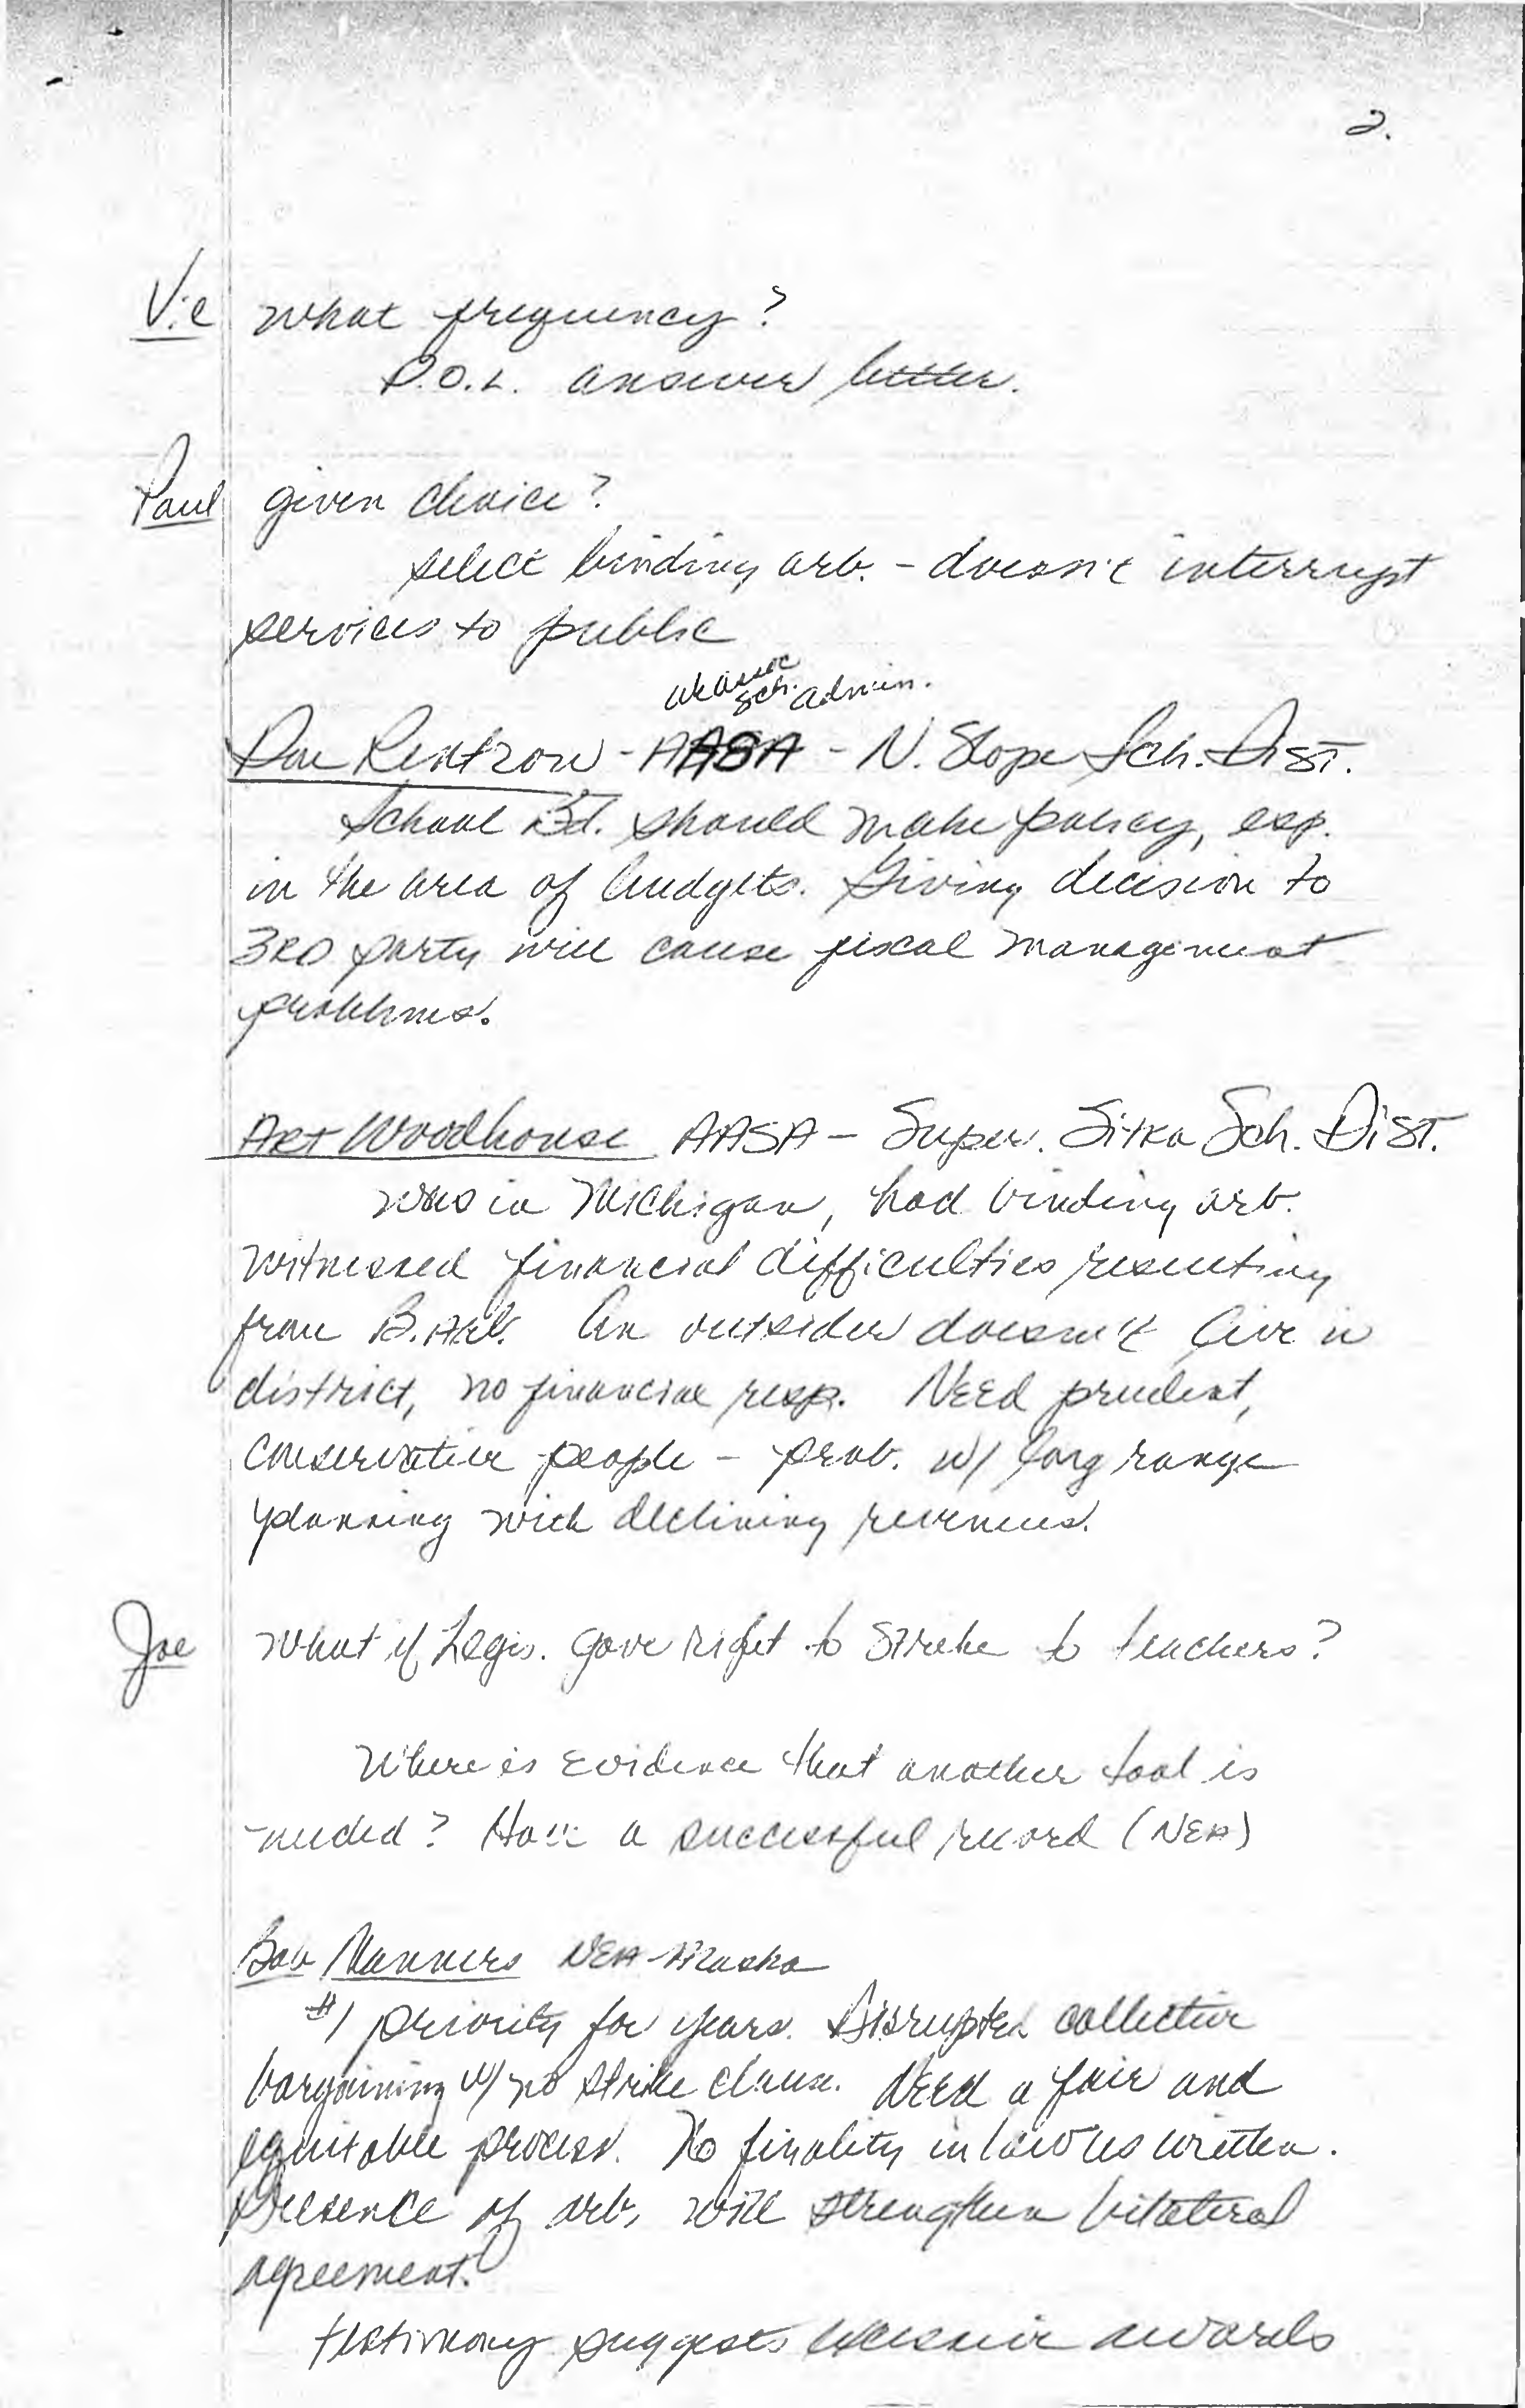 2.
Vic what frequency?
D.O.L. answer better.
Paul given choice?
select binding arb. - doesn't interrupt
services to public
sch. admin.
Don Rentzow - AASA - N. Slope Sch. Dist.
School Bd. should make policy, esp.
in the area of budgets. Giving decision to
3RD party will cause fiscal management
problems.
Art Woodhouse AASA - Super. Sitka Sch. Dist.
was in Michigan, had binding arb.
witnessed financial difficulties resulting
from B. Arb. An outsider doesn't live in
district, no financial resp. Need prudent,
conservative people - prob. w/ long range
planning with declining revenues.
Joe What if Legis. gave right to strike to teachers?
Where is evidence that another tool is
needed? Have a successful record (NEA)
Bob Manners NEA-Alaska
#1 priority for years. Disrupted collective
bargaining w/ no strike clause. Need a fair and
equitable process. No finality in law as written.
Presence of arb. will strengthen bilateral
agreement.
testimony suggests excessive awards